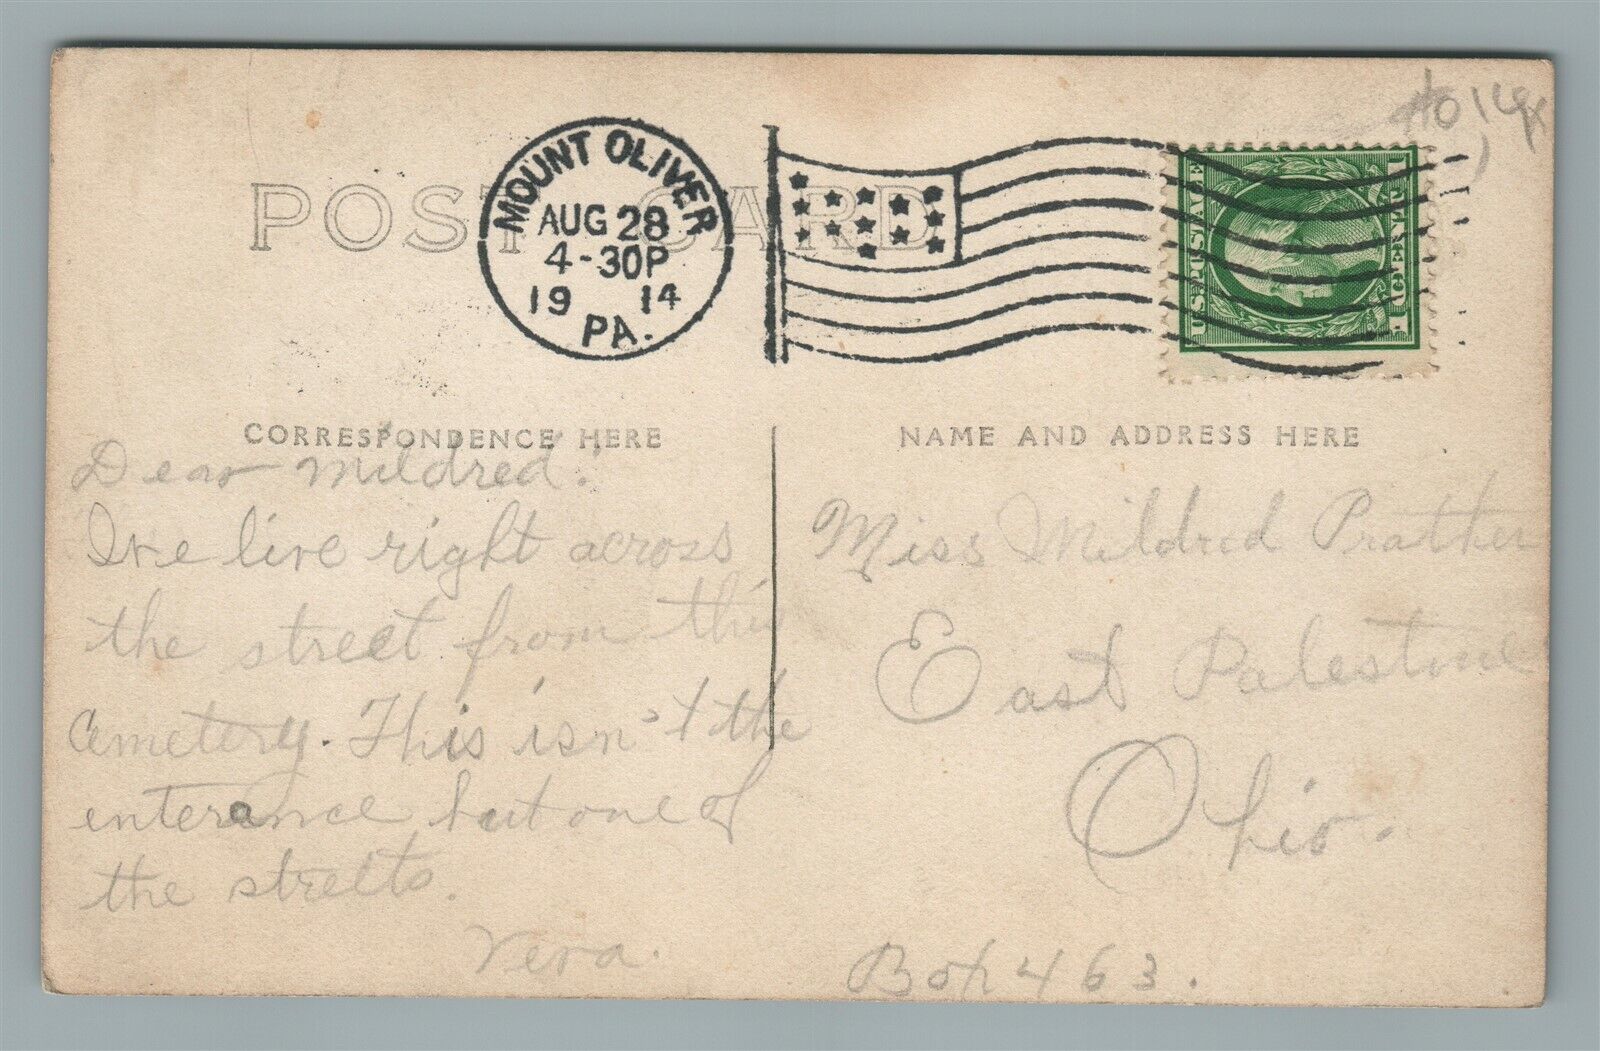 POST CARD
MOUNT OLIVER
AUG 28
4-30P
19 14
PA.
U.S. POSTAGE
1 CENT 1
CORRESPONDENCE HERE
NAME AND ADDRESS HERE
Dear Mildred.
I've live right across
the street from this
Cemetery. This isn't the
enterance but one of
the streets.
Vera.
Miss Mildred Prather
East Palestine
Ohio.
Box 463.